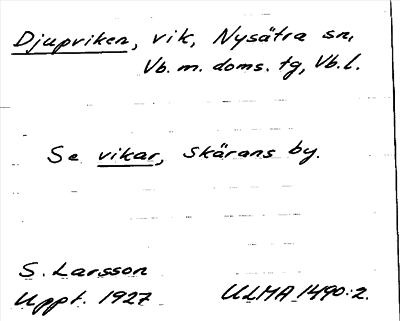 Djupviken, vik, Nysätra sn,
Vb. m. doms. tg, Vb. l.
Se vikar, Skärans by.
S. Larsson
Uppt. 1927 ULMA 1490:2.